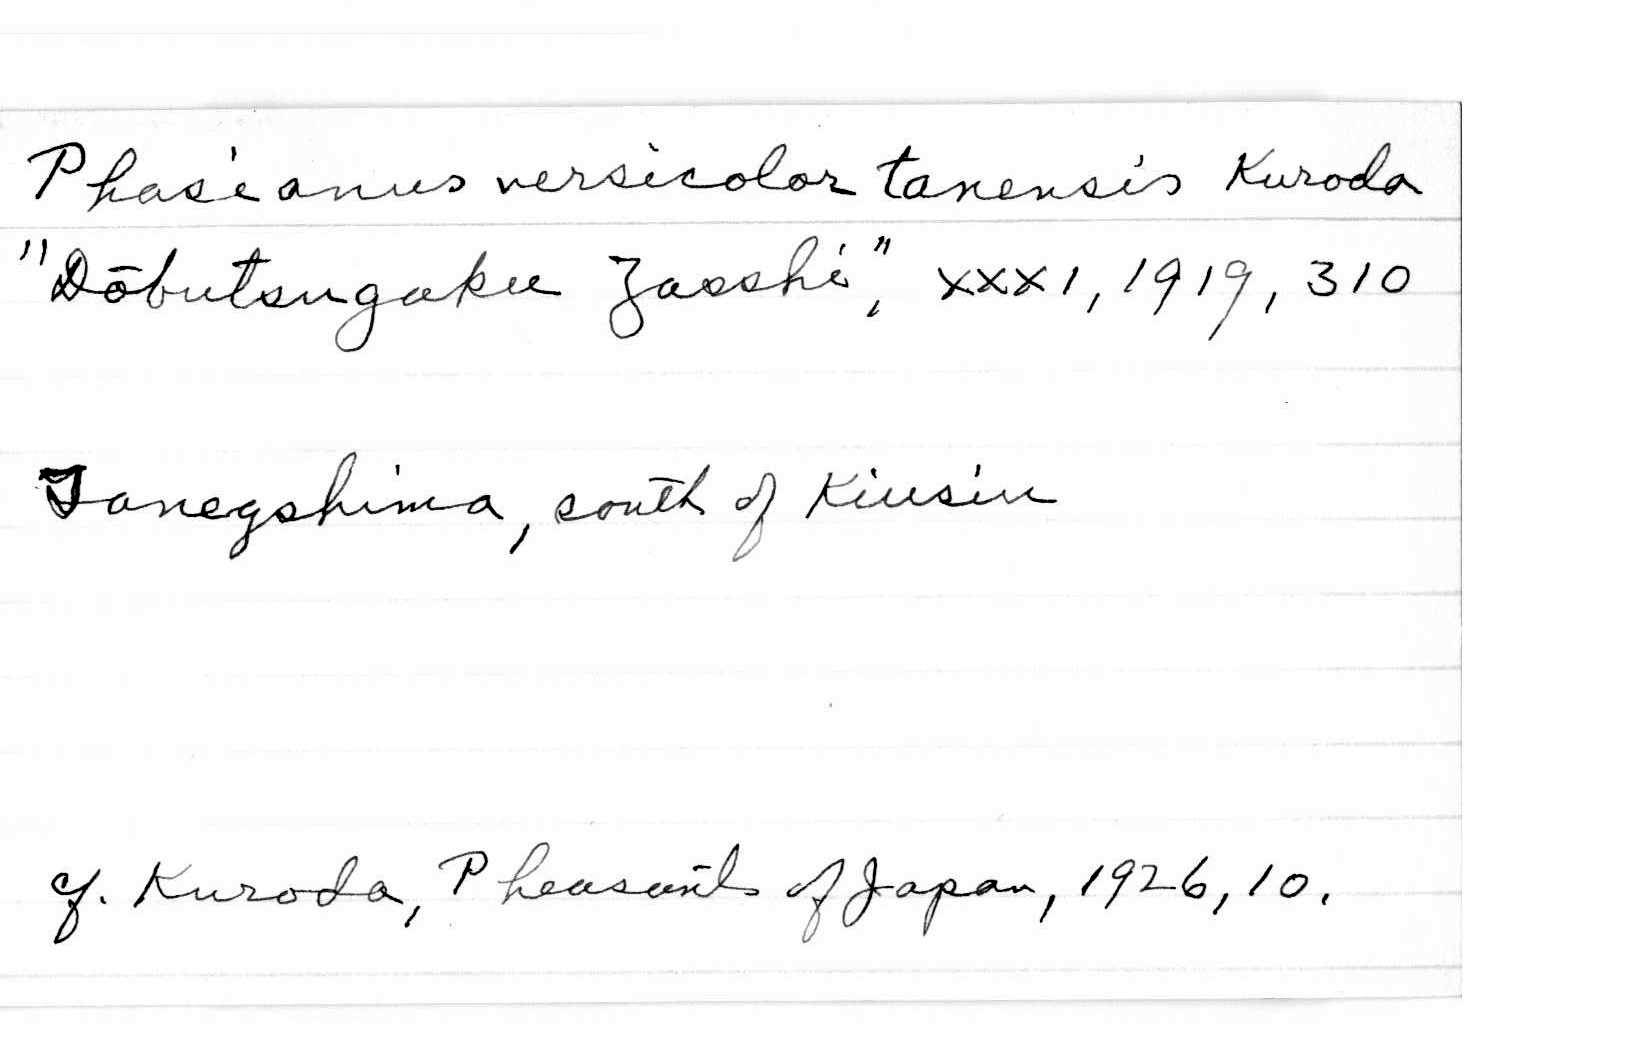 Phasianus versicolor tanensis Kuroda
"Dōbutsugaku Zasshi", XXXI, 1919, 310
Tanegshima, south of Kiusiu
cf. Kuroda, Pheasants of Japan, 1926, 10.